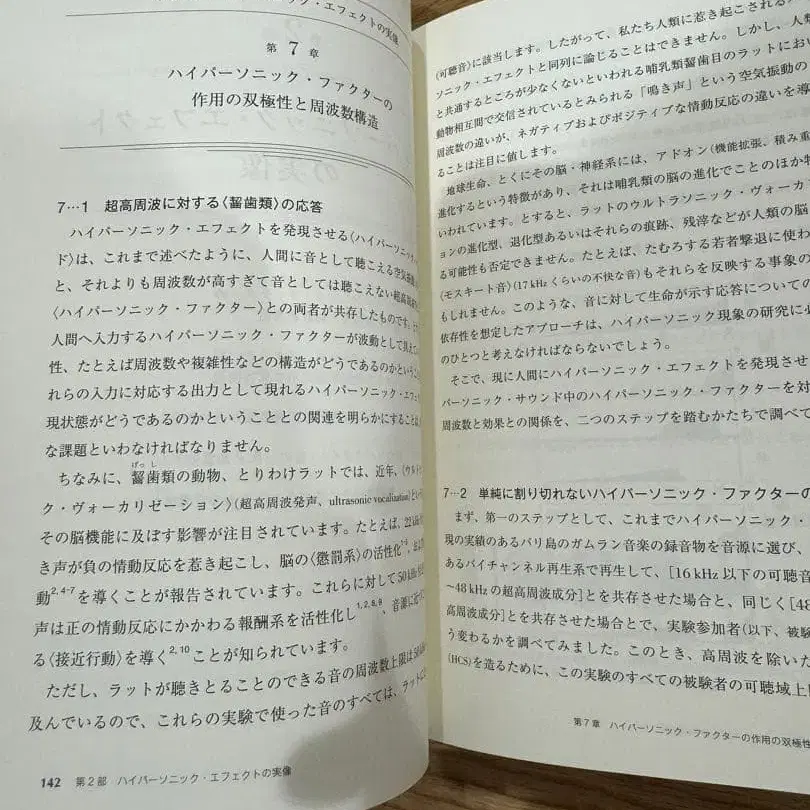 ソニック・エフェクトの実像
第7章
ハイパーソニック・ファクターの
作用の双極性と周波数構造
7…1 超高周波に対する〈齧歯類〉の応答
ハイパーソニック・エフェクトを発現させる〈ハイパーソニック
ド〉は、これまで述べたように、人間に音として聴こえる空気振動
と、それよりも周波数が高すぎて音としては聴こえない超高周波
〈ハイパーソニック・ファクター〉との両者が共存したものです。
人間へ入力するハイパーソニック・ファクターが波動として
性、たとえば周波数や複雑性などの構造がどうであるのかという
れらの入力に対応する出力として現れるハイパーソニック・エフェ
現状態がどうであるのかということとの関連を明らかにすることは
な課題といわなければなりません。
ちなみに、齧歯類の動物、とりわけラットでは、近年、〈ウルト
げっし
ク・ヴォーカリゼーション〉(超高周波発声、ultrasonic vocalization)
その脳機能に及ぼす影響が注目されています。たとえば、22
き声が負の情動反応を惹き起こし、脳の〈懲罰系〉の活性化
動2,4-7を導くことが報告されています。これらに対して50 kHz
声は正の情動反応にかかわる報酬系を活性化し1,2,8,9、音源に近
る〈接近行動〉を導く2,10ことが知られています。
ただし、ラットが聴きとることのできる音の周波数上限は
及んでいるので、これらの実験で使った音のすべては、ラット
142 第2部 ハイパーソニック・エフェクトの実像
〈可聴音〉に該当します。したがって、私たち人類に惹き起こされる
ソニック・エフェクトと同列に論じることはできません。しかし、人
と共通するところが少なくないといわれる哺乳類齧歯目のラットにおい
動物相互間で交信されているとみられる「鳴き声」という空気振動の
周波数の違いが、ネガティブおよびポジティブな情動反応の違いを導
ることは注目に値します。
地球生命、とくにその脳・神経系には、アドオン(機能拡張、積み重
進化するという特徴があり、それは哺乳類の脳の進化でことのほか
いわれています。とすると、ラットのウルトラソニック・ヴォーカ
ョンの進化型、退化型あるいはそれらの痕跡、残滓などが人類の脳
る可能性も否定できません。たとえば、たむろする若者撃退に使わ
〈モスキート音〉(17 kHzくらいの不快な音)もそれらを反映する事象の
もしれません。このような、音に対して生命が示す応答についての
依存性を想定したアプローチは、ハイパーソニック現象の研究に必
のひとつと考えなければならないでしょう。
そこで、現に人間にハイパーソニック・エフェクトを発現させ
パーソニック・サウンド中のハイパーソニック・ファクターを対
周波数と効果との関係を、二つのステップを踏むかたちで調べて
7…2 単純に割り切れないハイパーソニック・ファクターの
まず、第一のステップとして、これまでハイパーソニック・
現の実績のあるバリ島のガムラン音楽の録音物を音源に選び、
あるバイチャンネル再生系で再生して、[16 kHz 以下の可聴音
〜48 kHzの超高周波成分]とを共存させた場合と、同じく[48
高周波成分]とを共存させた場合とで、実験参加者(以下、被験
う変わるかを調べてみました。このとき、高周波を除いた
(HCS)を造るために、この実験のすべての被験者の可聴域上限
第7章 ハイパーソニック・ファクターの作用の双極性